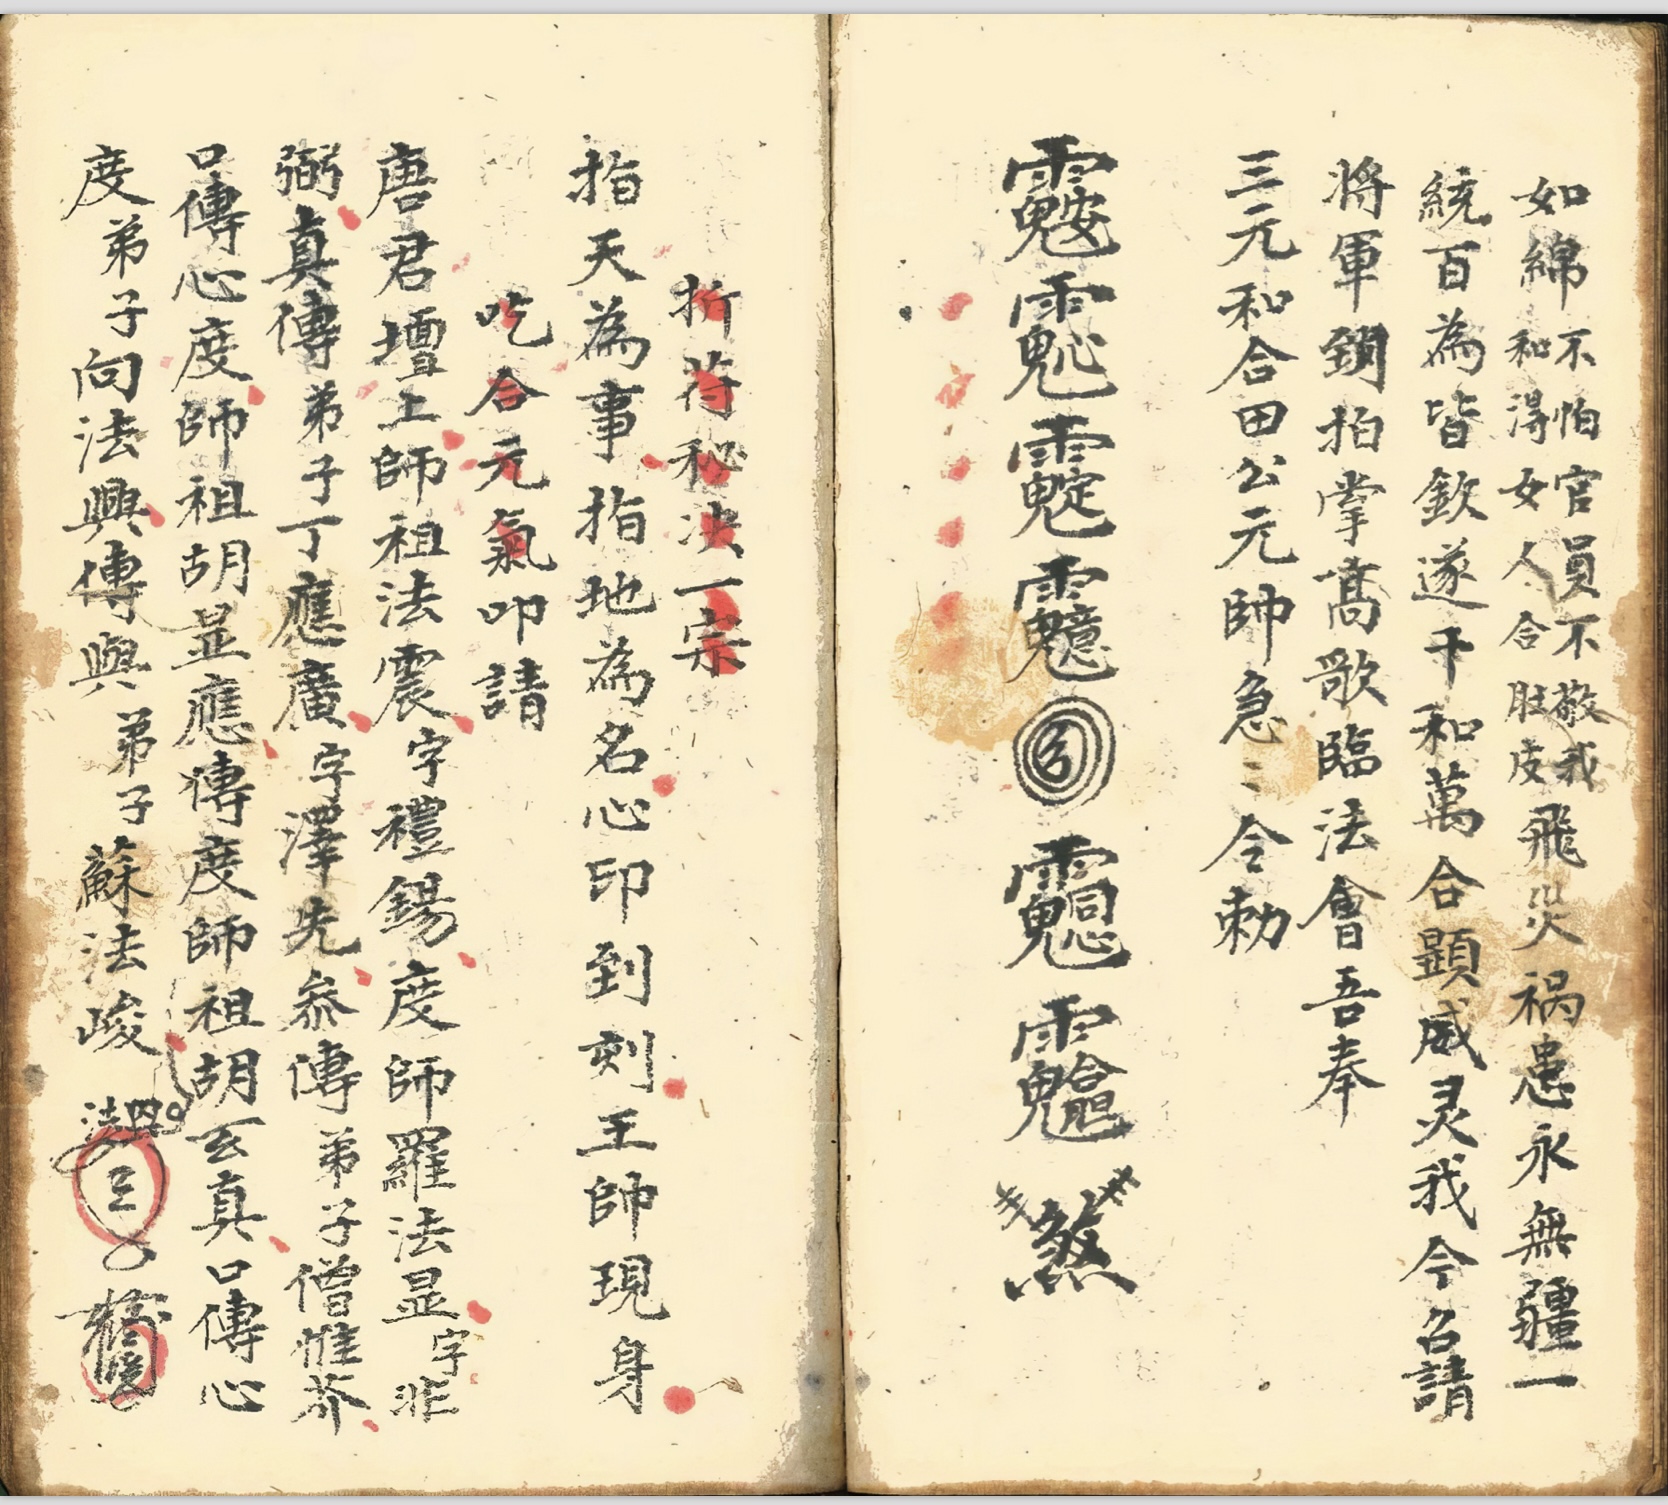 如綿不怕官員不敬我和得女人合肚皮飛災祸患永無疆一
統百為皆欽遂千和萬合顕威灵我今召請
將軍鎖拍掌高歌臨法會吾奉
三元和合田公元帥急〻令勅
煞
折符秘决一宗
指天為事指地為名心印到刻王帥現身
吃合元氣叩請
唐君壇上師祖法震字禮錫度師羅法显字非
弼真傳弟子丁應廣字澤先叅傳弟子僧惟芥
口傳心度師祖胡显應傳度師祖胡玄真口傳心
度弟子向法興傳與弟子蘇法峻